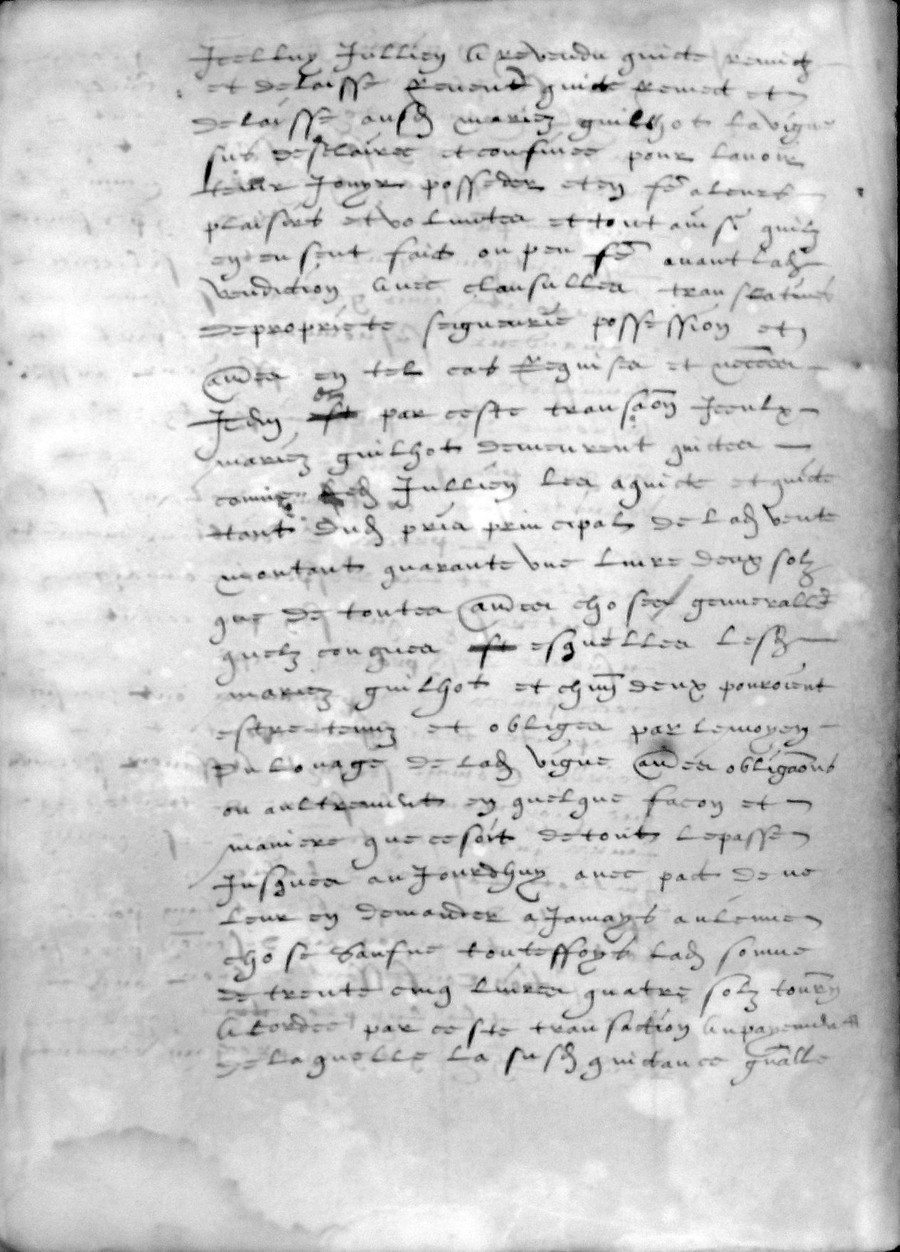 Icelluy Jullien a revendu quicte remictz
et delaisse revend quicte remect et
delaisse ausd mariez guilhot la vigne
sus desclairee et confinee pour lavoir
tenir Jouyr posseder et en fe a leurs
plaisirs et voluntes et tout ainsi quilz
eussent faict ou peu fe avant lad
vendiction avec clausulles translatives
de propriete seigneurie possession et
aues en tel cas Requises et necces
Item par ceste transaon Iceulx
mariez guilhot demeurent quictes
comme led Jullien les a quicte et quicte
tant dud pris principal de lad vente
montant quarante une livre deux solz
que de toutes aues choses generalle
quelzconques esquelles lesd
mariez guilhot et chun deux pouroient
estre tenuz et obliges par le moyen
du louage de lad vigne aues obligaons
ou aultrement en quelque facon et
maniere que ce soit de tout le passe
Jusques au Jourdhuy avec pact de ne
leur en demander a Jamays aulcune
chose saufve touteffoys lad somme
de trente cinq livres quatre solz tourn
acordee par ceste transaction au payement
de laquelle la susd quictance gnalle